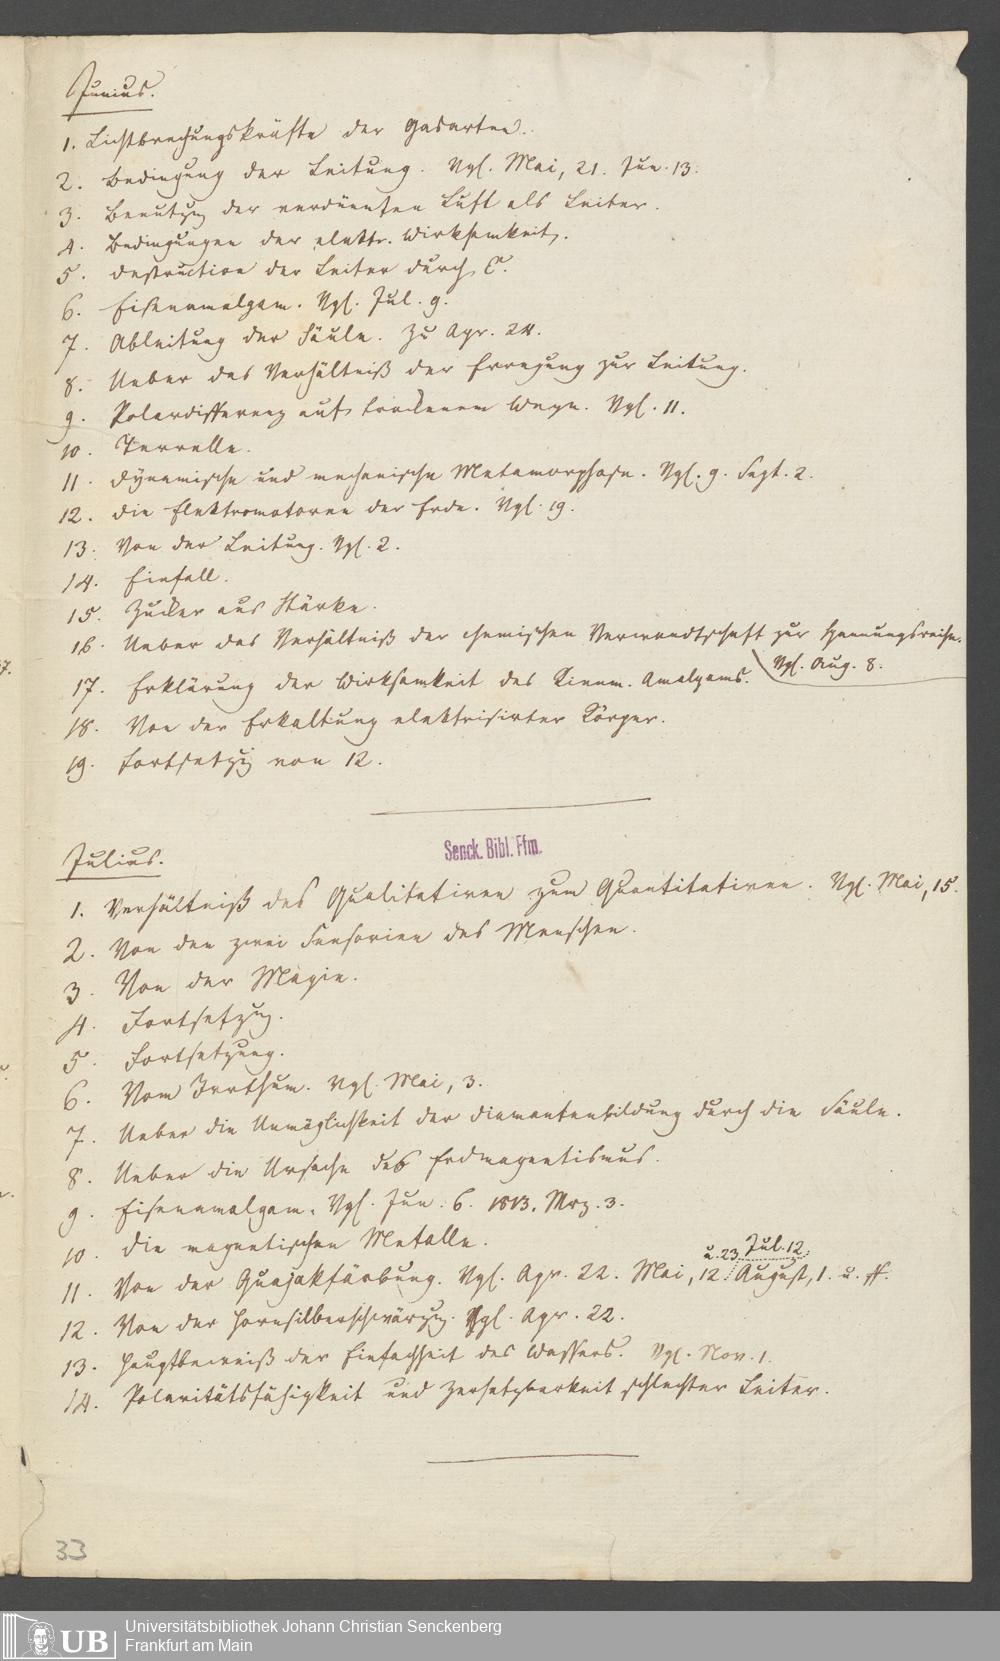 Junius.
1. Lichtbrechungskräfte der Gasarten.
2. Bedingung der Leitung. Vgl. Mai, 21. Jun. 13.
3. Benutzug der verdünnten Luft als Leiter.
4. Bedingungen der elektr. Wirksamkeit.
5. Destruction der Leiter durch
6. Eisenamalgam. Vgl. Jul. 9.
7. Ableitung der Säule. Zu Apr. 24.
8. Ueber das Verhältniß der Erregung zur Leitung.
9. Polardifferenz auf trockenem Wege. Vgl. 11.
10. Terrelle.
11. Dynamische und mechanische Metamorphose. Vgl. 9. Sept. 2.
12. Die Elektromotoren der Erde. Vgl. 19.
13. Von der Leitung. Vgl. 2.
14. Einfall.
15. Zucker aus Stärke.
16. Ueber das Verhältniß der chemischen Verwandtschaft zur Spannungsreihe.
Vgl. Aug. 8.
17. Erklärung der Wirksamkeit des Kienm. Amalgams.
18. Von der Erkaltung elektrisirter Körper.
19. Fortsetzug von 12.
Senck. Bibl. Ffm.
Julius.
1. Verhältniß des Qualitativen zum Quantitativen. Vgl. Mai, 15.
2. Von den zwei Sensorien des Menschen.
3. Von der Magie.
4. Fortsetzug.
5. Fortsetzung.
6. Vom Irrthum. Vgl. Mai, 3.
7. Ueber die Unmöglichkeit der Diamantenbildung durch die Säule.
8. Ueber die Ursache des Erdmagnetismus.
9. Eisenamalgam. Vgl. Jun. 6. 1813. Mrz. 3.
10. Die magnetischen Metalle.
u. 23. Jul. 12.
11. Von der Guajakfärbung. Vgl. Apr. 22. Mai, 12. August, 1. u. ff.
12. Von der Hornsilberschwärzug. Vgl. Apr. 22.
13. Hauptbeweiß der Einfachheit des Wassers. Vgl. Nov. 1.
14. Polaritätsfähigkeit und Zersetzbarkeit schlechter Leiter.
33
UB
Universitätsbibliothek Johann Christian Senckenberg
Frankfurt am Main